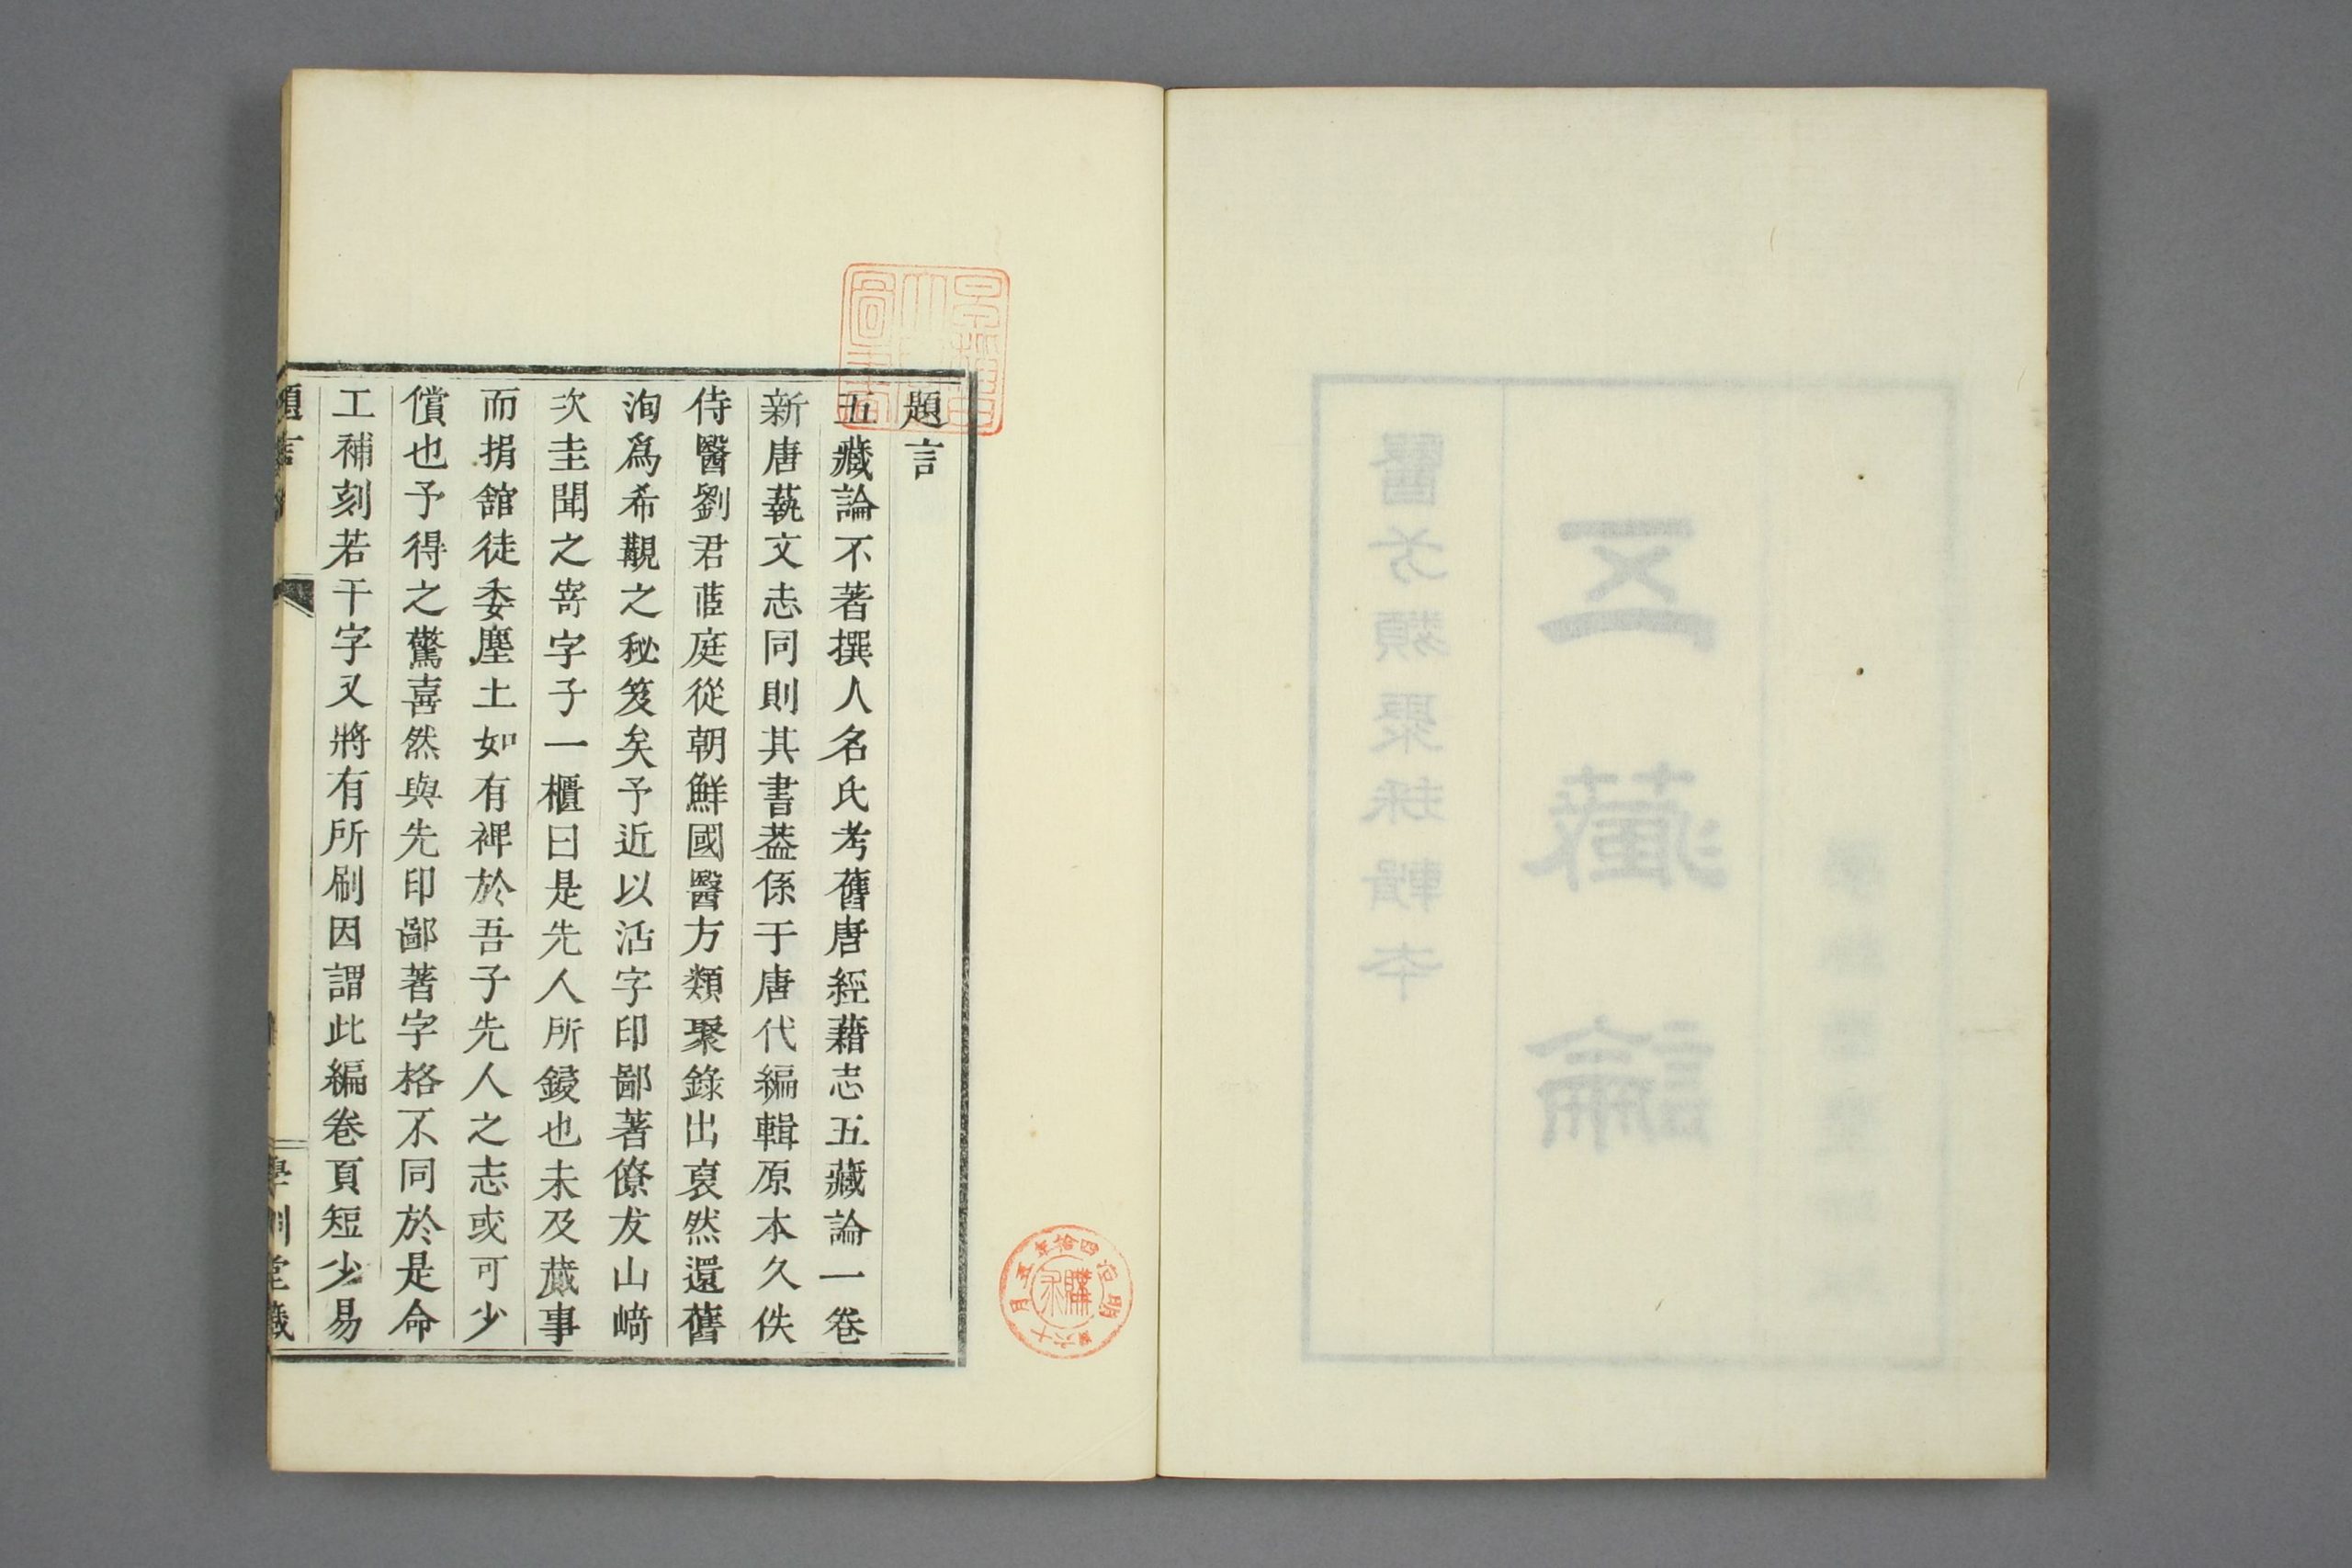 醫方類聚採輯本
五藏論
題言
五藏論不著撰人名氏考舊唐經藉志五藏論一卷
新唐蓺文志同則其書葢係于唐代編輯原本久佚
侍醫劉君茝庭從朝鮮國醫方類聚錄出裒然還舊
洵爲希覯之秘笈矣予近以活字印鄙著僚友山﨑
次圭聞之寄字子一櫃曰是先人所鋟也未及蕆事
而捐舘徒委塵土如有裨於吾子先人之志或可少
償也予得之驚喜然與先印鄙著字格不同於是命
工補刻若干字又將有所刷因謂此編卷頁短少易
題言
學訓堂藏
明治四拾年五月十六日
購求